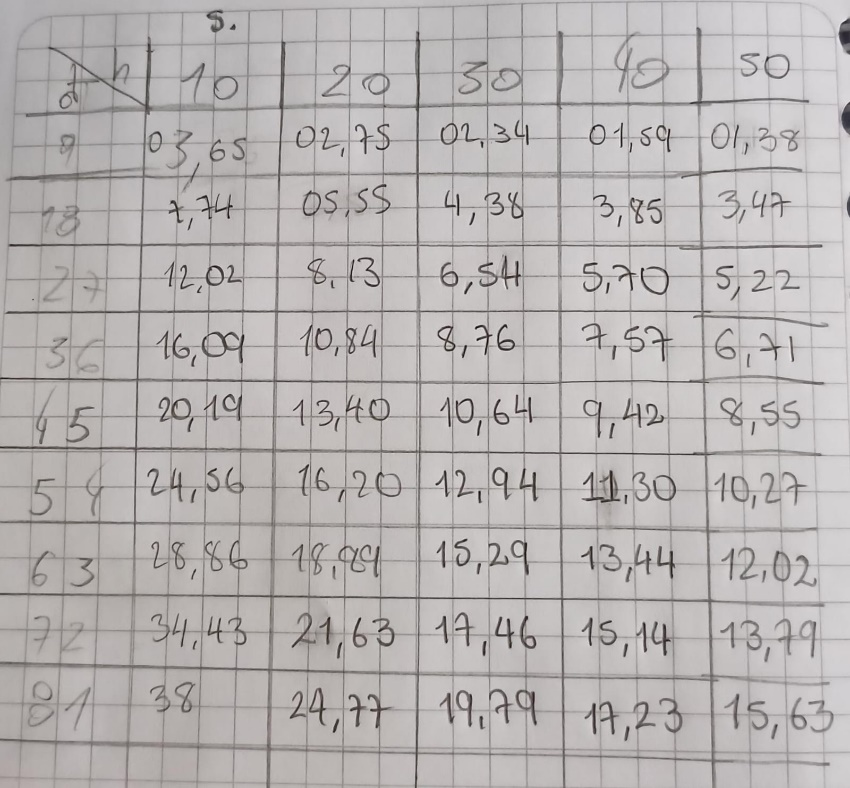 s.
d h 10 20 30 40 50
9 03,65 02,75 02,34 01,59 01,38
18 7,74 05,55 4,38 3,85 3,47
27 12,02 8,13 6,54 5,70 5,22
36 16,09 10,84 8,76 7,57 6,71
45 20,19 13,40 10,64 9,42 8,55
54 24,56 16,20 12,94 11,30 10,27
63 28,86 18,89 15,29 13,44 12,02
72 34,43 21,63 17,46 15,14 13,79
81 38 24,77 19,79 17,23 15,63